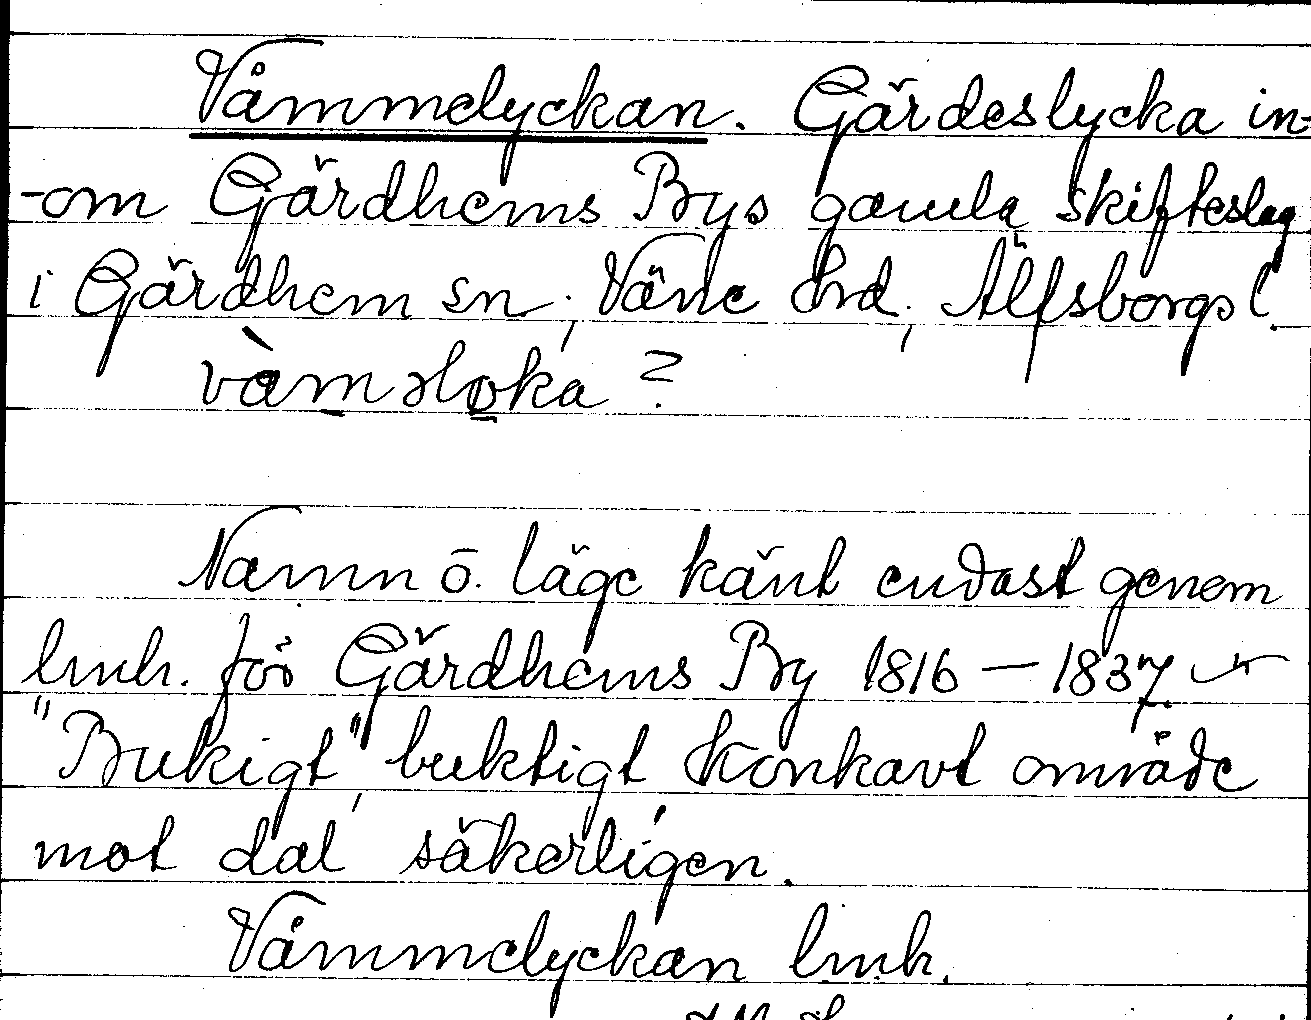 Våmmelyckan. Gärdeslycka in-
-om Gärdhems Bys gamla skifteslag
i Gärdhem sn; Väne hrd; Älfsborgs l.
Namn o. läge känt endast genom
lmh. för Gärdhems By 1816 – 1837
"Bukigt", buktigt konkavt område
mot dal säkerligen.
Våmmelyckan lmh.